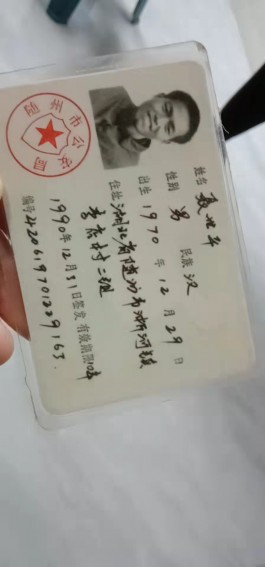 姓名 聂世华
性别 男 民族 汉
出生 1970年12月29日
住址 湖北省随州市淅河镇
李店村二组
1990年12月31日签发 有效期限10年
编号 420619701229163.
随州市公安局